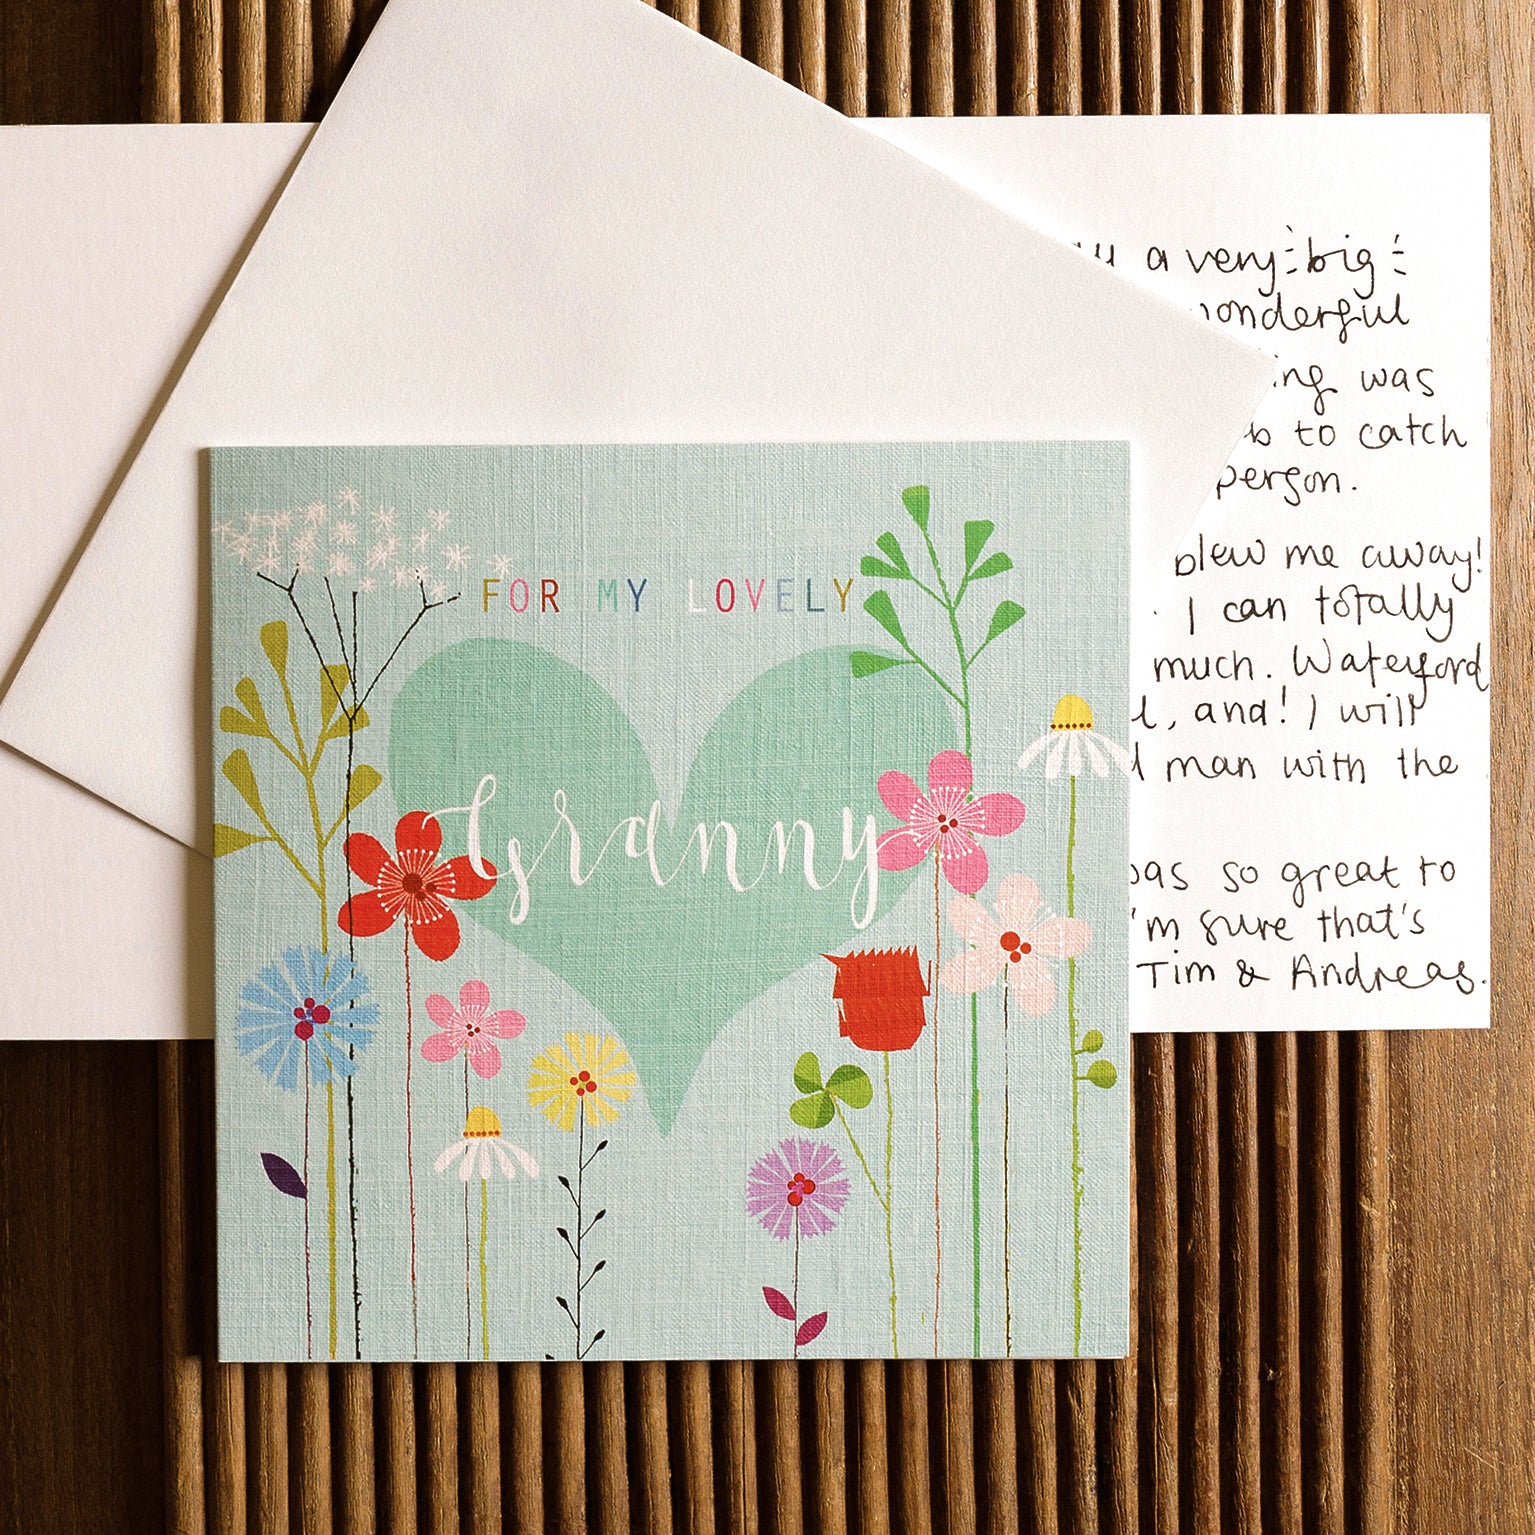 FOR MY LOVELY
Granny
a very big
wonderful
was
to catch
person.
blew me away!
I can totally
much. Waterford
, and! I will
man with the
was so great to
I'm sure that's
Tim & Andreas.